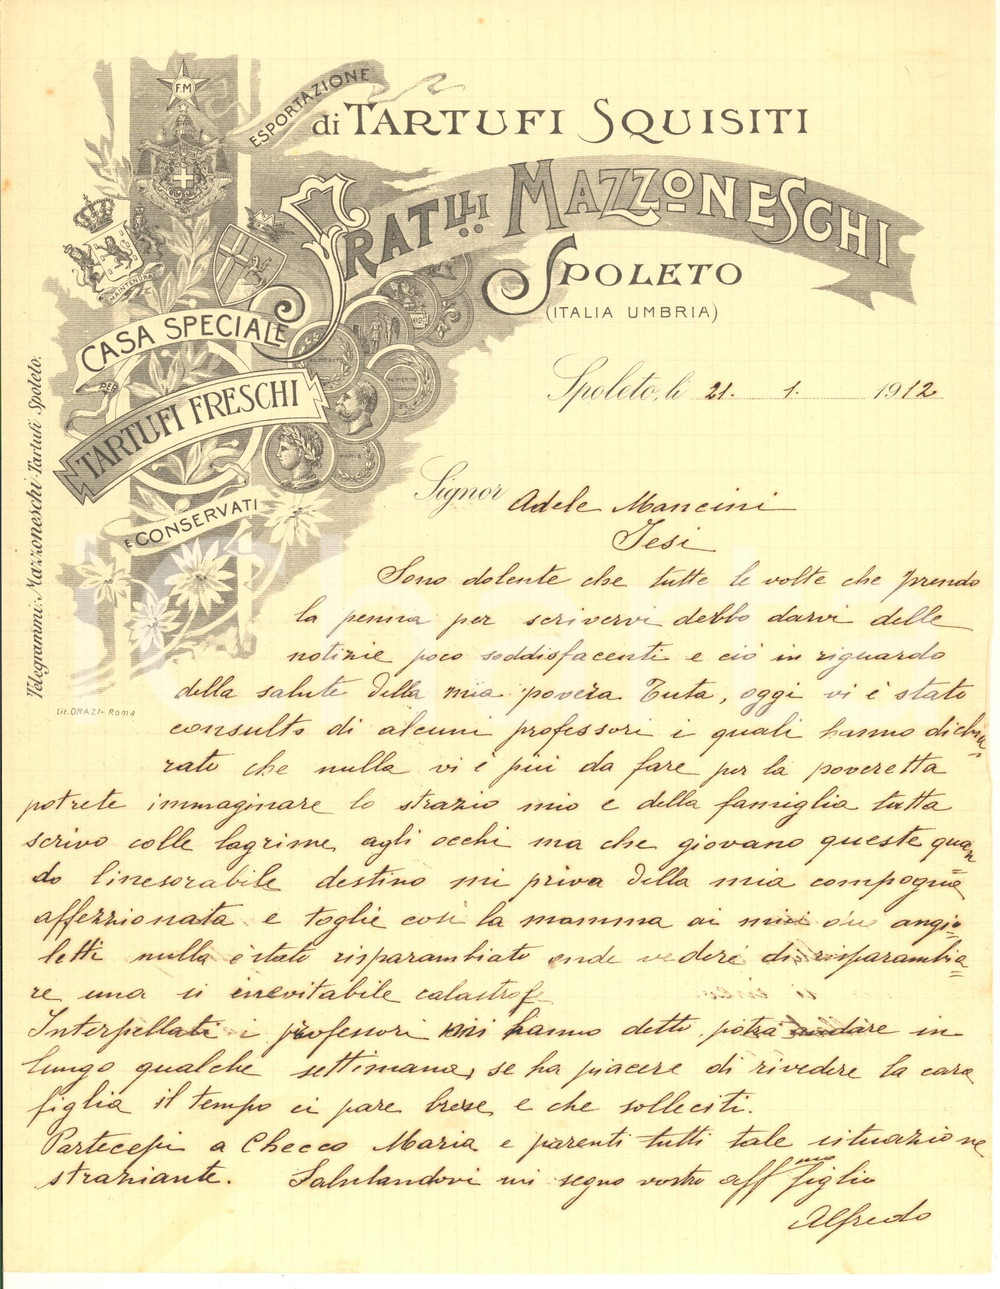 F.M
ESPORTAZIONE
di TARTUFI SQUISITI
FRATELLI MAZZONESCHI
SPOLETO
(ITALIA UMBRIA)
MAINTENDRAI
CASA SPECIALE
PER
TARTUFI FRESCHI
E CONSERVATI
PARIS
Telegrammi: Mazzoneschi-Tartufi Spoleto.
Lit. ORAZI - Roma
Spoleto, li 21. 1. 1912
Signor Adele Mancini
Jesi
Sono dolente che tutte le volte che prendo
la penna per scrivervi debbo darvi delle
notizie poco soddisfacenti e ciò in riguardo
della salute della mia povera Tuta, oggi vi è stato
consulto di alcuni professori i quali hanno dichia
rato che nulla vi è più da fare per la poveretta
potrete immaginare lo strazio mio e della famiglia tutta
scrivo colle lagrime agli occhi ma che giovano queste quan
do l'inesorabile destino mi priva della mia compagna
affezzionata e toglie così la mamma ai miei due angio=
letti nulla è stato risparambiato onde vedere di risparambia
re una sì inevitabile catastrofe
Interpellati i professori mi hanno detto potrà andare in
lungo qualche settimana, se ha piacere di rivedere la cara
figlia il tempo ci pare breve e che solleciti.
Partecipi a Checco Maria e parenti tutti tale situazione
straziante. Salutandovi mi segno vostro aff.mo figlio
Alfredo